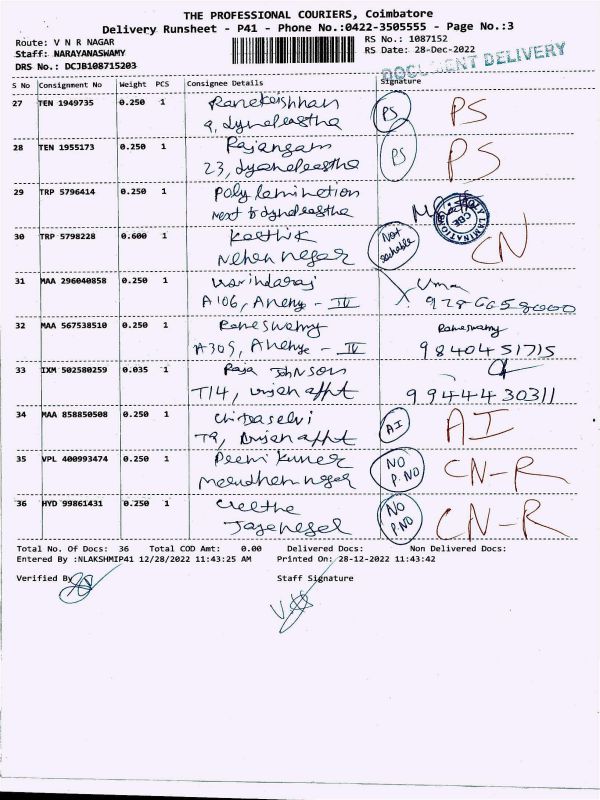 THE PROFESSIONAL COURIERS, Coimbatore
Delivery Runsheet - P41 - Phone No.:0422-3505555 - Page No.:3
Route: V N R NAGAR
RS No.: 1087152
Staff: NARAYANASWAMY
RS Date: 28-Dec-2022
DRS No.: DCJB108715203
DOCUMENT DELIVERY
S No Consignment No Weight PCS Consignee Details Signature
27 TEN 1949735 0.250 1 PS PS
28 TEN 1955173 0.250 1 Rajangam PS PS
23,
29 TRP 5796414 0.250 1 Poly lamination
next to
POLY LAMINATION CBE
30 TRP 5798228 0.600 1 Karthik Not CN
Nehru nagar
31 MAA 296040858 0.250 1 Uma
A106, - IV
32 MAA 567538510 0.250 1 Rameswamy Rameswamy
A305, - IV 9840451715
33 IXM 502580259 0.035 1 Raja Johnson
T14, appt 9944430311
34 MAA 858850508 0.250 1 AI AI
T9, appt
35 VPL 400993474 0.250 1 NO P.NO CN-R
36 HYD 99861431 0.250 1 NO P.NO CN-R
Total No. Of Docs: 36 Total COD Amt: 0.00 Delivered Docs: Non Delivered Docs:
Entered By :NLAKSHMIP41 12/28/2022 11:43:25 AM Printed On: 28-12-2022 11:43:42
Verified By Staff Signature